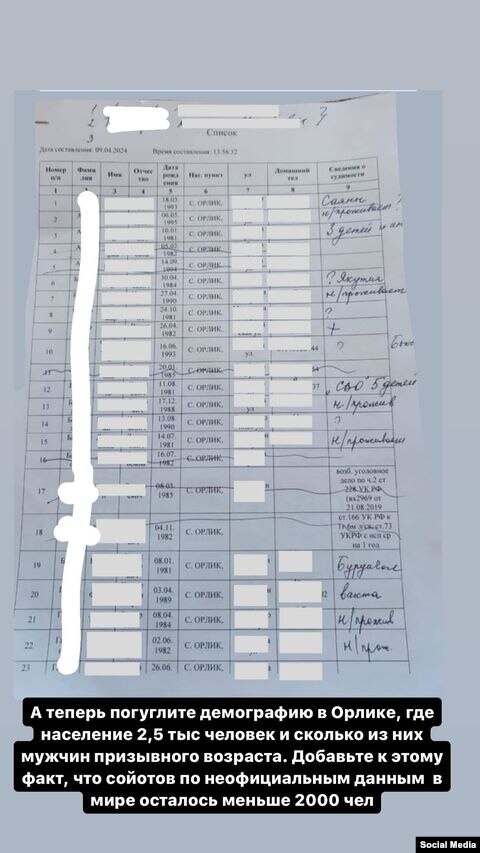 1
2
3
Список
Дата составления: 09.04.2024 Время составления: 13:56:32
Номер п/п Фами лия Имя Отчес тво Дата рожд ения Нас. пункт ул Домашний тел Сведения о судимости
1 2 3 4 5 6 7 8 9
1 18.03. 1993 С. ОРЛИК, Саяны ?
2 06.05. 1995 С. ОРЛИК, н/проживает
3 10.01. 1981 С. ОРЛИК, 3 детей и
4 05.02. 1982 С. ОРЛИК,
5 14.09. 1994 С. ОРЛИК,
6 30.04. 1984 С. ОРЛИК, ? Якутия
7 27.04. 1990 С. ОРЛИК, н/проживает
8 24.10. 1981 С. ОРЛИК, ?
9 26.04. 1982 С. ОРЛИК, +
10 16.06. 1993 С. ОРЛИК, ул. 44 ?
11 20.01. 1985 С. ОРЛИК, 54
12 11.08. 1981 С. ОРЛИК, 37 "СВО" 5 детей
13 17.12. 1988 С. ОРЛИК, ул н/прожив
14 13.08. 1990 С. ОРЛИК, ?
15 14.07. 1981 С. ОРЛИК, н/проживает
16 16.07. 1982 С. ОРЛИК,
17 08.03. 1985 С. ОРЛИК, возб. уголовное
дело по ч.2 ст
228 УК РФ
(вх2969 от
21.08.2019
18 04.11. 1982 С. ОРЛИК, ст.166 УК РФ к
ст.73
УКРФ с исп ср
на 1 год
19 08.01. 1981 С. ОРЛИК,
20 03.04. 1989 С. ОРЛИК, вахта
21 08.04. 1984 С. ОРЛИК, н/прожив
22 02.06. 1982 С. ОРЛИК, н/прож.
23 26.06. С. ОРЛИК,
А теперь погуглите демографию в Орлике, где
население 2,5 тыс человек и сколько из них
мужчин призывного возраста. Добавьте к этому
факт, что сойотов по неофициальным данным в
мире осталось меньше 2000 чел
Social Media